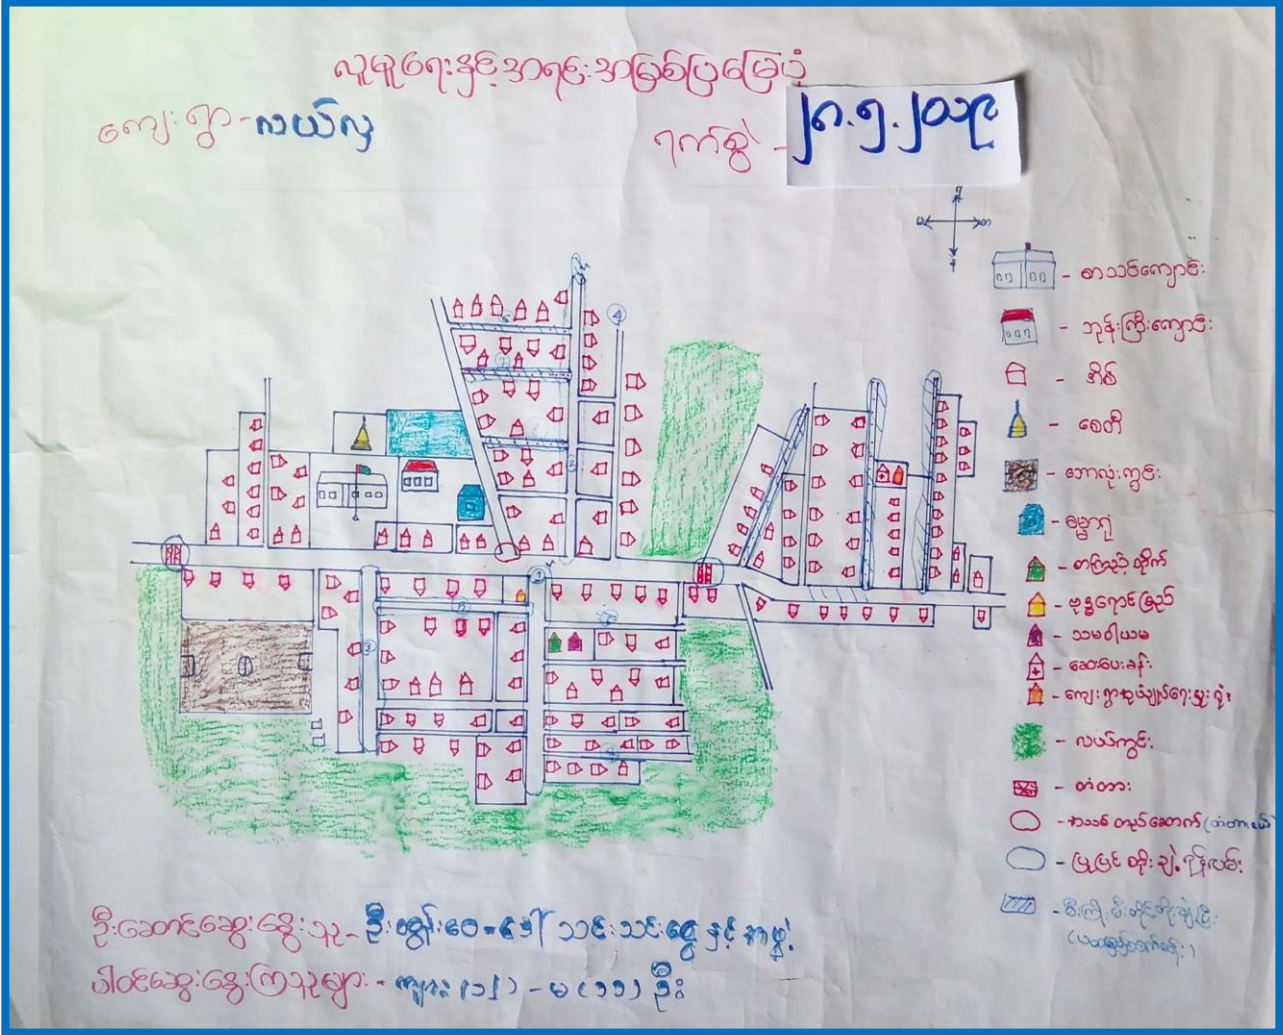 လူမှုရေးနှင့်အရင်းအမြစ်ပြမြေပုံ
ကျေးရွာ - လယ်လှ
ရက်စွဲ - ၂၈.၅.၂၀၁၉
၄
- စာသင်ကျောင်း
- ဘုန်းကြီးကျောင်း
- အိမ်
- စေတီ
- ဘောလုံးကွင်း
- ဓမ္မာရုံ
- စာကြည့်တိုက်
- ဗုဒ္ဓရောင်ခြည်
- သမဝါယမ
- ဆေးပေးခန်း
- ကျေးရွာအုပ်ချုပ်ရေးမှူးရုံး
- လယ်ကွင်း
- တံတား
- အသစ်တည်ဆောက် (တံတားငယ်)
- ပြုပြင် တိုးချဲ့ ကွန်လမ်း
ဦးဆောင်ဆွေးနွေးသူ - ဦးထွန်းဝေ - ဒေါ်သင်းသင်းငွေ နှင့် အဖွဲ့
ပါဝင်ဆွေးနွေးကြသူများ - ကျား (၁၂) - မ (၁၁) ဦး